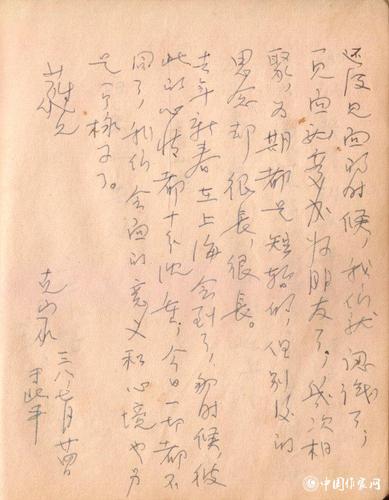 还没见面的时候，我们就認識了，
一见面就变成好朋友了，几次相
聚，为期都是短暂的，但别后的
思念却很長，很長。
去年新春在上海会到了，那时候，彼
此的心情都十分沉重，今日一切都不
同了，我们会面的意义和心境也另
是一个樣子了。
蕻兄
克家 三八，七月廿
于北平
中国作家网